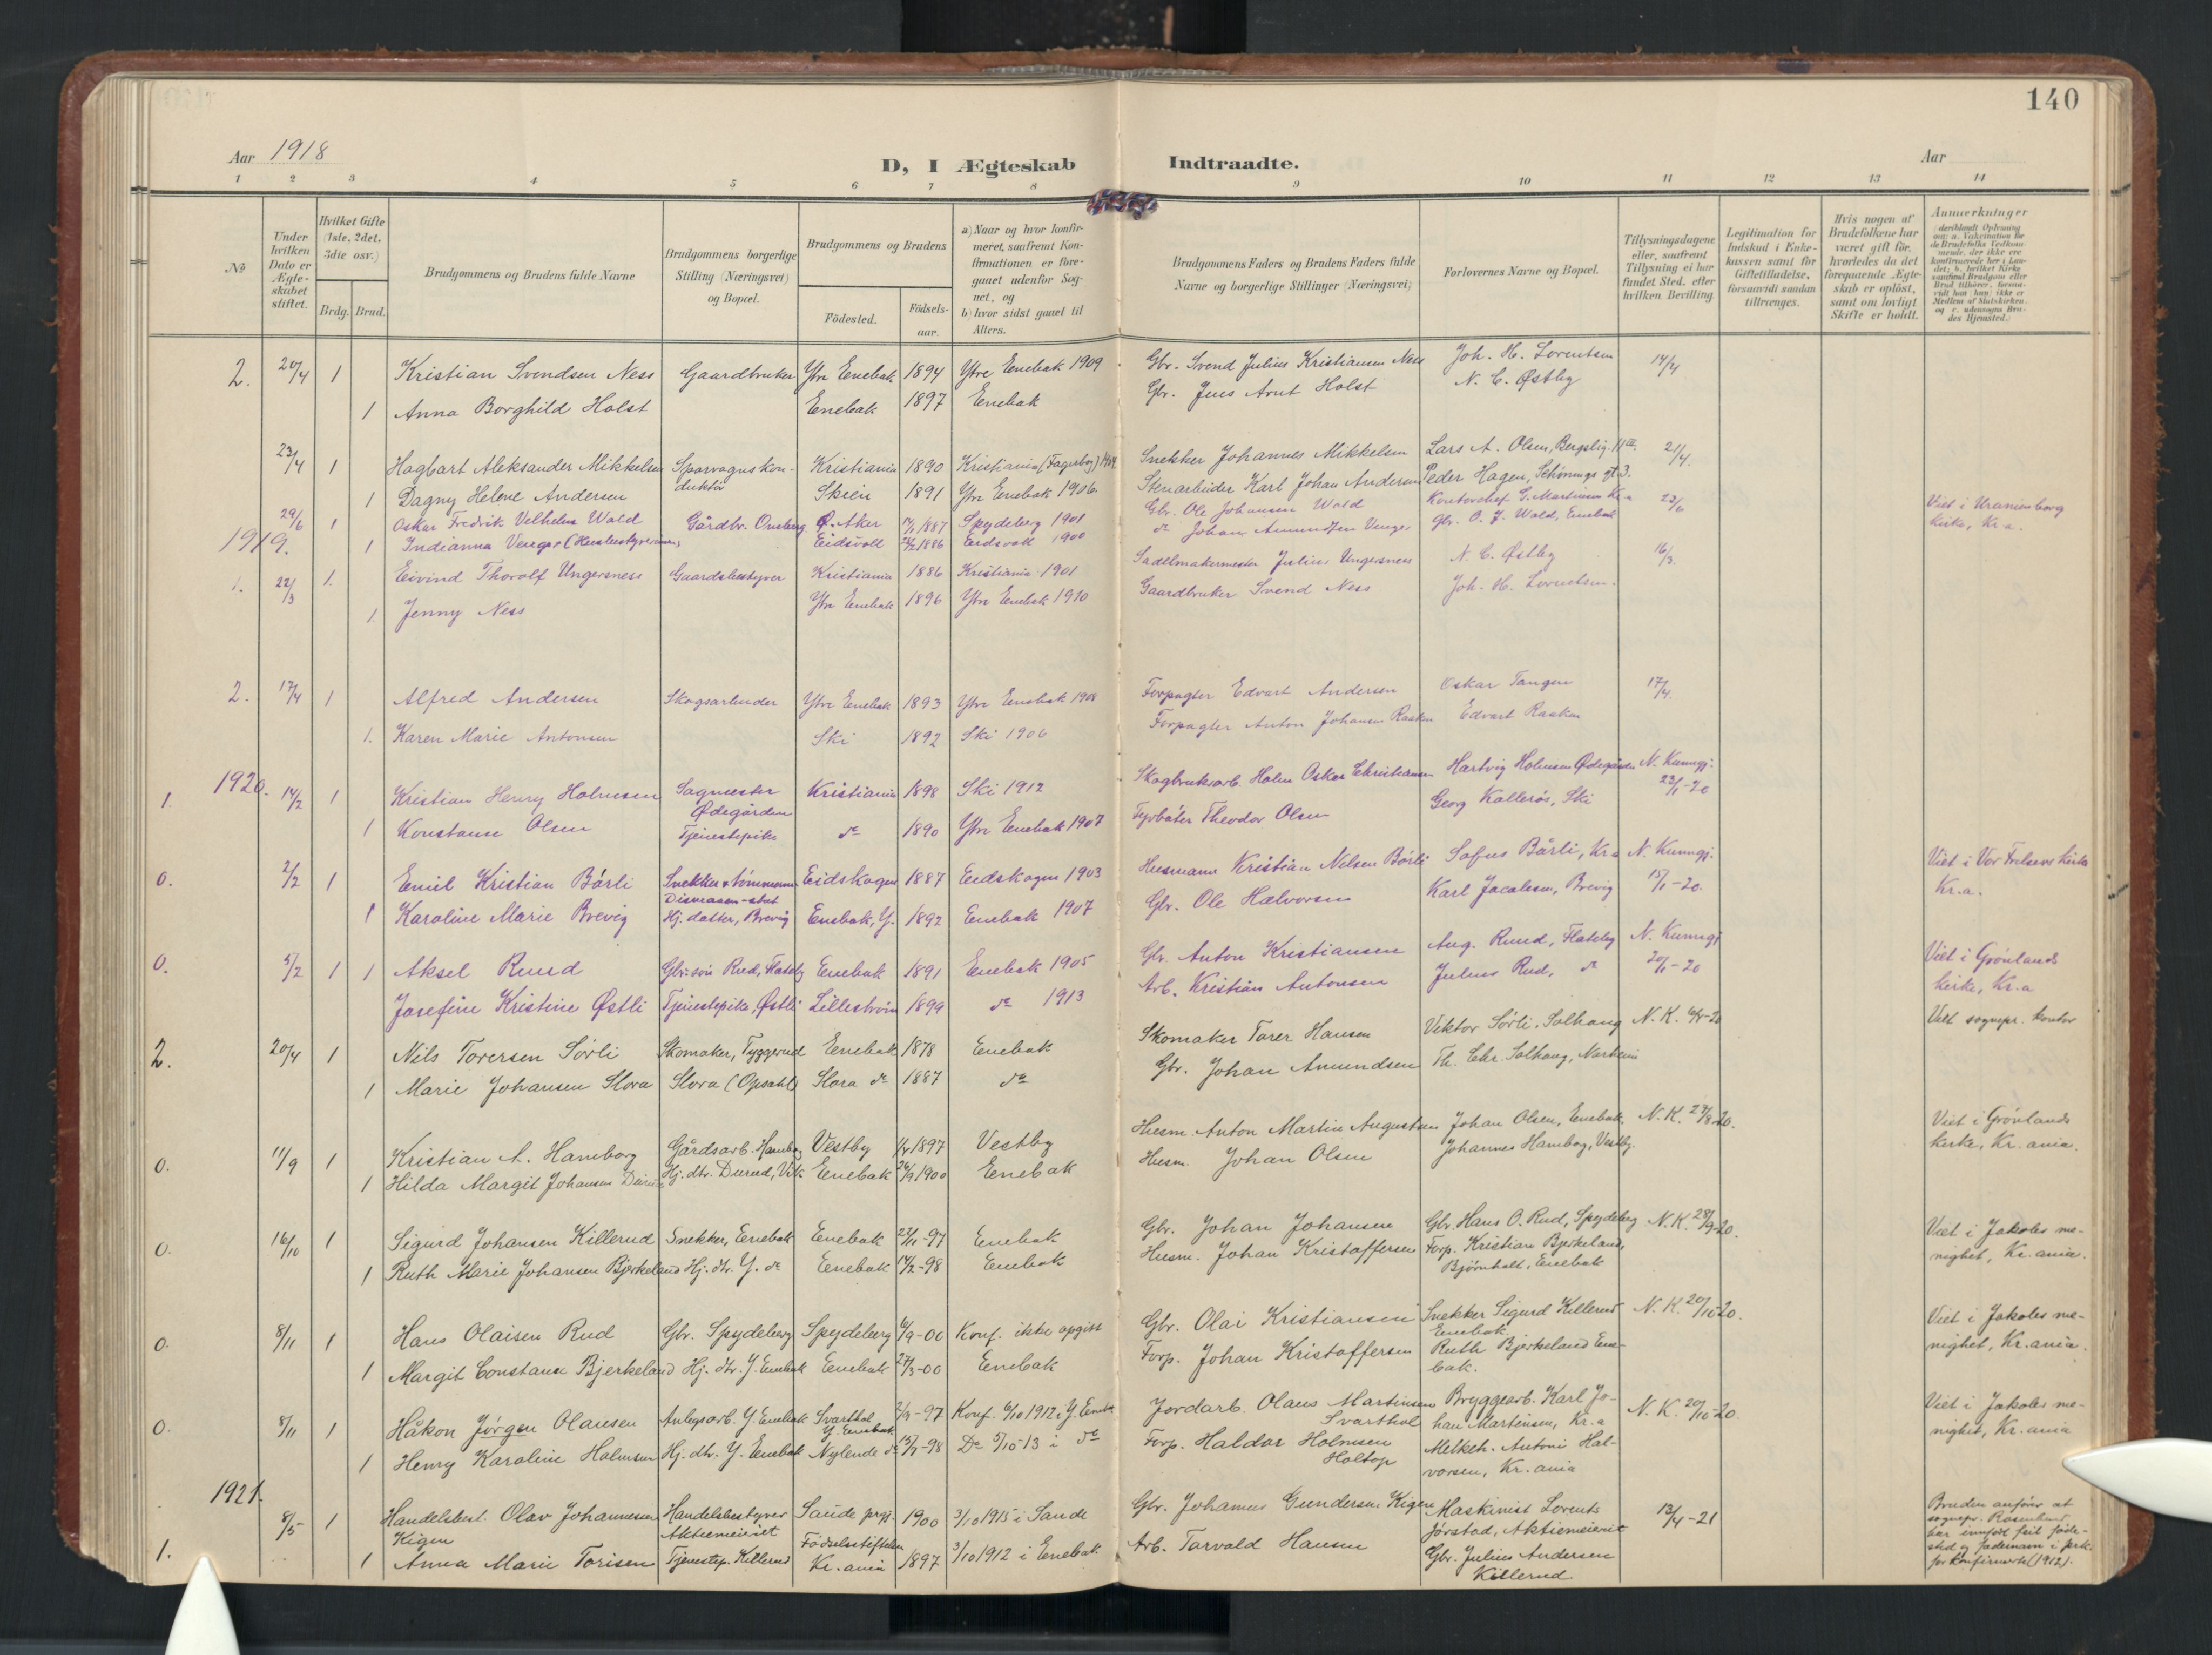 140
Aar 1918
D, I Ægteskab Indtraadte.
Aar
1 2 3 4 5 6 7 8 9 10 11 12 13 14
№
Under hvilken Dato er Ægteskabet stiftet.
Hvilket Gifte (1ste, 2det, 3die osv.)
Brdg. Brud.
Brudgommens og Brudens fulde Navne
Brudgommens borgerlige Stilling (Næringsvei) og Bopæl.
Brudgommens og Brudens
Fødested.
Fødselsaar.
a) Naar og hvor konfirmeret, saafremt Konfirmationen er foregaaet udenfor Sognet, og
b) hvor sidst gaaet til Alters.
Brudgommens Faders og Brudens Faders fulde Navne og borgerlige Stillinger (Næringsvei)
Forlovernes Navne og Bopæl.
Tillysningsdagene eller, saafremt Tillysning ei har fundet Sted, efter hvilken Bevilling.
Legitimation for Indskud i Enkekassen samt for Giftetilladelse, forsaavidt saadan tiltrænges.
Hvis nogen af Brudefolkene har været gift før, hvorledes da det foregaaende Ægteskab er opløst, samt om lovligt Skifte er holdt.
Anmærkninger
2. 20/4 1 Kristian Svendsen Ness Gaardbruker Ytre Enebak 1894 Ytre Enebak 1909 Gbr. Svend Julius Kristiansen Ness Joh. H. Lorentsen 14/4
1 Anna Borghild Holst Enebak 1897 Enebak Gbr. Jens Arnt Holst N. C. Østby
23/4 1 Hagbart Aleksander Mikkelsen Sporvognskonduktør Kristiania 1890 Kristiania (Fagerborg) Snekker Johannes Mikkelsen Lars A. Olsen, 21/4.
1 Dagny Helene Andersen Skien 1891 Ytre Enebak 1906 Stenarbeider Karl Johan Andersen Peder Hagen, Schønings gt 3.
29/6 1 Oskar Fredrik Velhelm Wold Gårdbr. Ø. Aker 1887 Spydeberg 1901 Gbr. Ole Johansen Wold Kontorchef G. Martinsen Kr.a 23/6 Viet i Uranienborg kirke, Kr.a.
1 Indianna Venger Eidsvoll 1886 Eidsvoll 1900 do Johan Amundsen Venger Gbr. O. J. Wold, Enebak
1919.
1. 22/3 1. Eivind Thorolf Ungersness Gaardsbestyrer Kristiania 1886 Kristiania 1901 Sadelmakermester Julius Ungersness N. C. Østby 16/3.
1 Jenny Ness Ytre Enebak 1896 Ytre Enebak 1910 Gaardbruker Svend Ness Joh. H. Lorentsen.
2. 17/4 1 Alfred Andersen Skogsarbeider Ytre Enebak 1893 Ytre Enebak 1908 Forpagter Edvart Andersen Oskar Tangen 17/4.
1. Karen Marie Antonsen Ski 1892 Ski 1906 Forpagter Anton Johansen Rasken Edvart Rasken
1920.
1. 14/2 1 Kristian Henry Holmsen Sagmester Ødegården Kristiania 1898 Ski 1912 Skogbruksarb. Holm Oskar Christiansen Hartvig Holmsen Ødegården N. Kunngj. 22/1-20
1 Konstanse Olsen Tjenestepike do 1890 Ytre Enebak 1907 Fyrbøter Theodor Olsen Georg Kallerös, Ski
0. 2/2 1 Emil Kristian Bårli Snekker & tømmerm. Eidskogen 1887 Eidskogen 1903 Husmann Kristian Nilsen Bårli Sofus Bårli, Kr.a N. Kunngj. 15/1-20. Viet i Vor Frelsers kirke Kr.a.
1 Karoline Marie Brevig Hj. datter, Brevig Enebak, Y. 1892 Enebak 1907 Gbr. Ole Halvorsen Karl Jacobsen, Brevig
0. 5/2 1 1 Aksel Ruud Gbr.søn Rud, Flateby Enebak 1891 Enebak 1905 Gbr. Anton Kristiansen Aug. Ruud, Flateby N. Kunngj. 20/1-20 Viet i Grønlands kirke, Kr.a
Josefine Kristine Østli Tjenestepike, Østli Lillestrøm 1899 do 1913 Arb. Kristian Antonsen Julius Rud, do
2. 20/4 1 Nils Toresen Sørli Skomaker, Tyggerud Enebak 1878 Enebak Skomaker Torer Hansen Viktor Sørli, Solhaug N. K. Viet sognepr. kontor
1 Marie Johansen Slora Slora (Opsahl) Slora do 1887 do Gbr. Johan Amundsen Th. Chr. Solhaug, Norheim
0. 11/9 1 Kristian A. Hamborg Gårdsarb. Hamborg Vestby 1897 Vestby Husm. Anton Martin Augustsen Johan Olsen, Enebak N. K. 27/8-20. Viet i Grønlands kirke, Kr.ania.
1 Hilda Margit Johansen Durud Hj. dtr. Durud, Vik Enebak 26/9 1900 Enebak Husm. Johan Olsen Johannes Hamborg, Vestby.
0. 16/10 1 Sigurd Johansen Killerud Snekker, Enebak Enebak 23/11-97 Enebak Gbr. Johan Johansen Gbr. Hans O. Rud, Spydeberg N. K. 28/9-20. Viet i Jakobs menighet, Kr.ania.
1 Ruth Marie Johansen Bjerkeland Hj. dtr. Y. do Enebak 14/2-98 Enebak Husm. Johan Kristoffersen Forp. Kristian Bjerkeland, Bjørnholt, Enebak
0. 8/11 1 Hans Olaisen Rud Gbr. Spydeberg Spydeberg 6/9-00 Konf. ikke opgitt Gbr. Olai Kristiansen Snekker Sigurd Killerud Enebak. N. K. 20/10-20. Viet i Jakobs menighet, Kr.ania.
1 Margit Constanse Bjerkeland Hj. dtr. Y. Enebak Enebak 27/3-00 Enebak Forp. Johan Kristoffersen Ruth Bjerkeland Enebak.
0. 8/11 1 Håkon Jørgen Olausen Anlegsarb. Y. Enebak Svarthol Y. Enebak 2/9-97 Konf. 6/10 1912 i Y. Enebak Jordarb. Olaus Martinsen Svarthol Bryggearb. Karl Johan Martinsen, Kr.a N. K. 20/10-20. Viet i Jakobs menighet, Kr.ania
1 Henny Karoline Holmsen Hj. dtr. Y. Enebak Nylende do 15/7-98 Do 5/10-13 i do Forp. Haldor Holmsen Holtop Melkeh. Antoni Halvorsen, Kr.ania
1921.
1. 8/5- 1 Handelsbest. Olav Johannessen Kigen Handelsbestyrer Aktiemeieriet Saude prgj. 1900 3/10 1915 i Sande Gbr. Johannes Gundersen Kigen Maskinist Lorents Jørstad, Aktiemeieriet 13/4-21 Bruden anfører at sognepr. Rosenlund har innført feil fødested og fadernavn i for konfirmerte (1912).
1 Anna Marie Torisen Tjenestep. Killerud Fødselsstiftelsen Kr.ania 1897 3/10 1912 i Enebak. Arb. Torvald Hansen Gbr. Julius Andersen Killerud